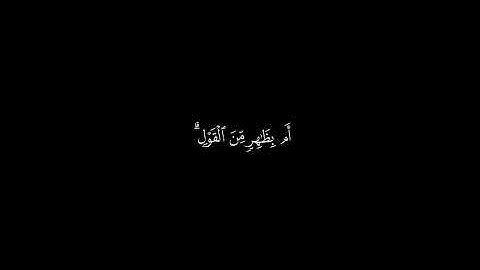 أَم بِظَٰهِرٍ مِّنَ ٱلْقَوْلِ ۗ